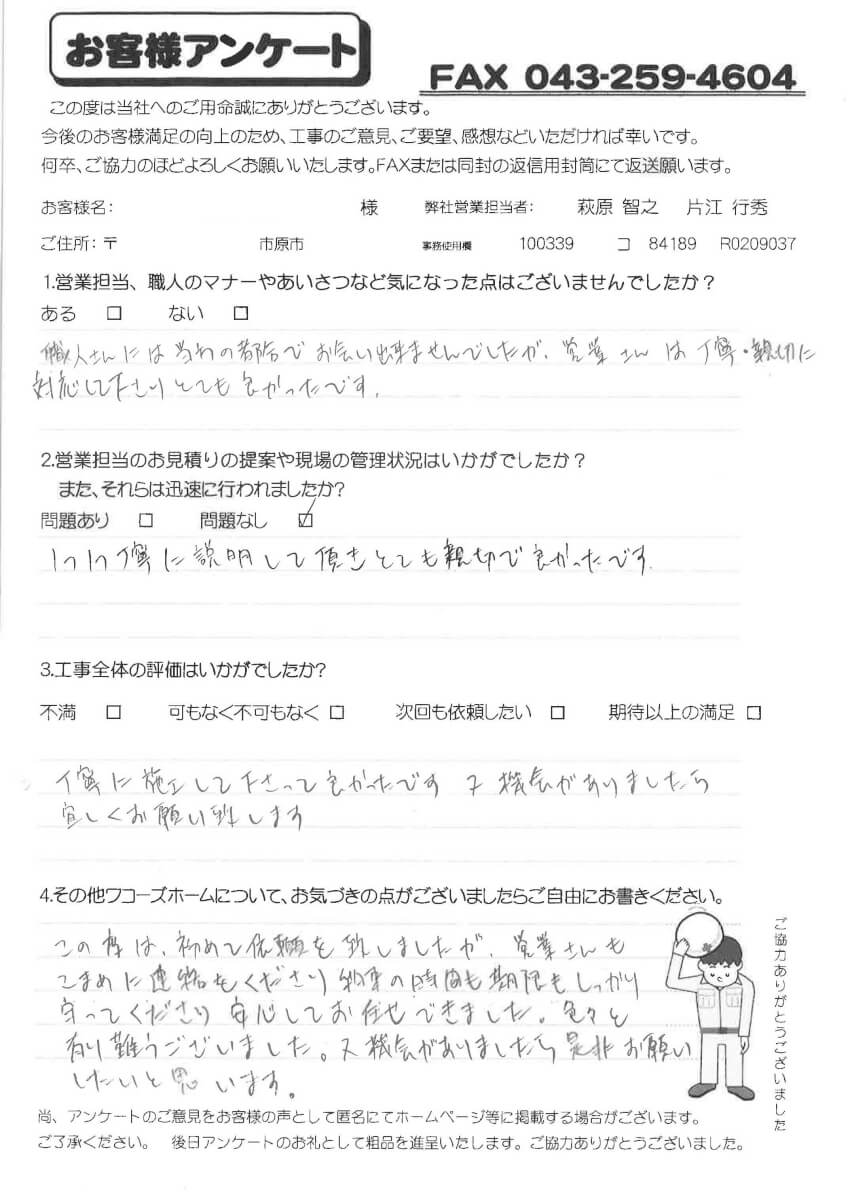 お客様アンケート
FAX 043-259-4604
この度は当社へのご用命誠にありがとうございます。
今後のお客様満足の向上のため、工事のご意見、ご要望、感想などいただければ幸いです。
何卒、ご協力のほどよろしくお願いいたします。FAXまたは同封の返信用封筒にて返送願います。
お客様名: 様 弊社営業担当者: 萩原 智之 片江 行秀
ご住所:〒 市原市 事務使用欄 100339 コ 84189 R0209037
1.営業担当、職人のマナーやあいさつなど気になった点はございませんでしたか?
ある □ ない □
職人さんには当方の都合でお会い出来ませんでしたが、営業さんは丁寧・親切に
対応して下さりとても良かったです。
2.営業担当のお見積りの提案や現場の管理状況はいかがでしたか?
また、それらは迅速に行われましたか?
問題あり □ 問題なし ☑
1つ1つ丁寧に説明して頂きとても親切で良かったです.
3.工事全体の評価はいかがでしたか?
不満 □ 可もなく不可もなく □ 次回も依頼したい □ 期待以上の満足 □
丁寧に施工して下さって良かったです 又機会がありましたら
宜しくお願い致します
4.その他ワコーズホームについて、お気づきの点がございましたらご自由にお書きください。
この度は、初めて依頼を致しましたが、営業さんも
こまめに連絡をくださり約束の時間も期限もしっかり
守ってくださり安心してお任せできました。色々と
有り難うございました。又機会がありましたら是非お願い
したいと思います。
ご協力ありがとうございました
尚、アンケートのご意見をお客様の声として匿名にてホームページ等に掲載する場合がございます。
ご了承ください。 後日アンケートのお礼として粗品を進呈いたします。ご協力ありがとうございました。